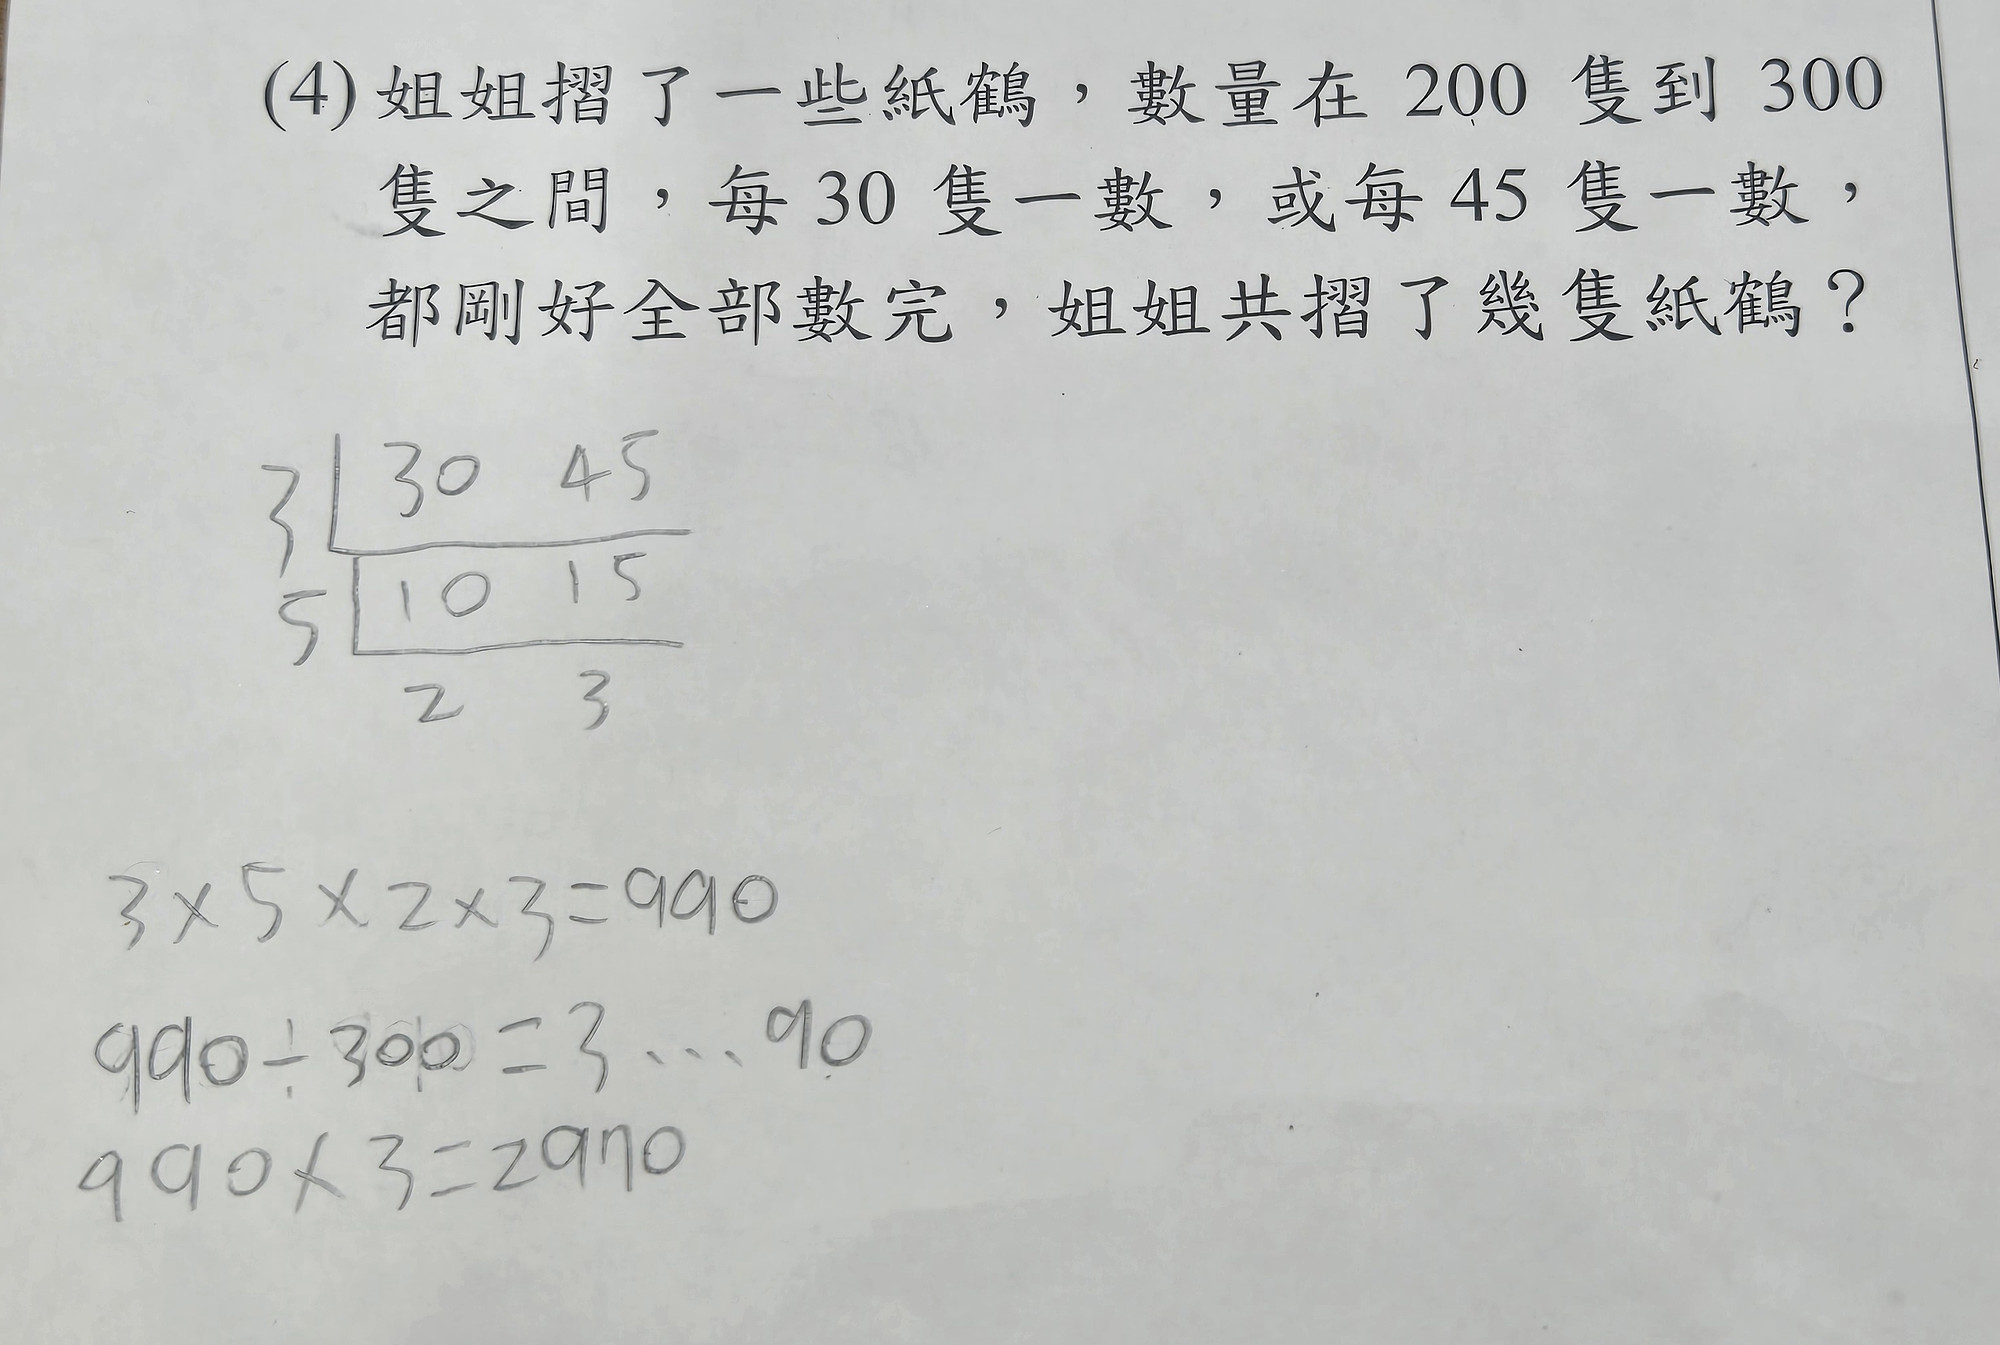 (4) 姐姐摺了一些紙鶴，數量在 200 隻到 300
隻之間，每 30 隻一數，或每 45 隻一數，
都剛好全部數完，姐姐共摺了幾隻紙鶴？
3 30 45
5 10 15
2 3
3×5×2×3=990
990÷300=3...90
990×3=2970